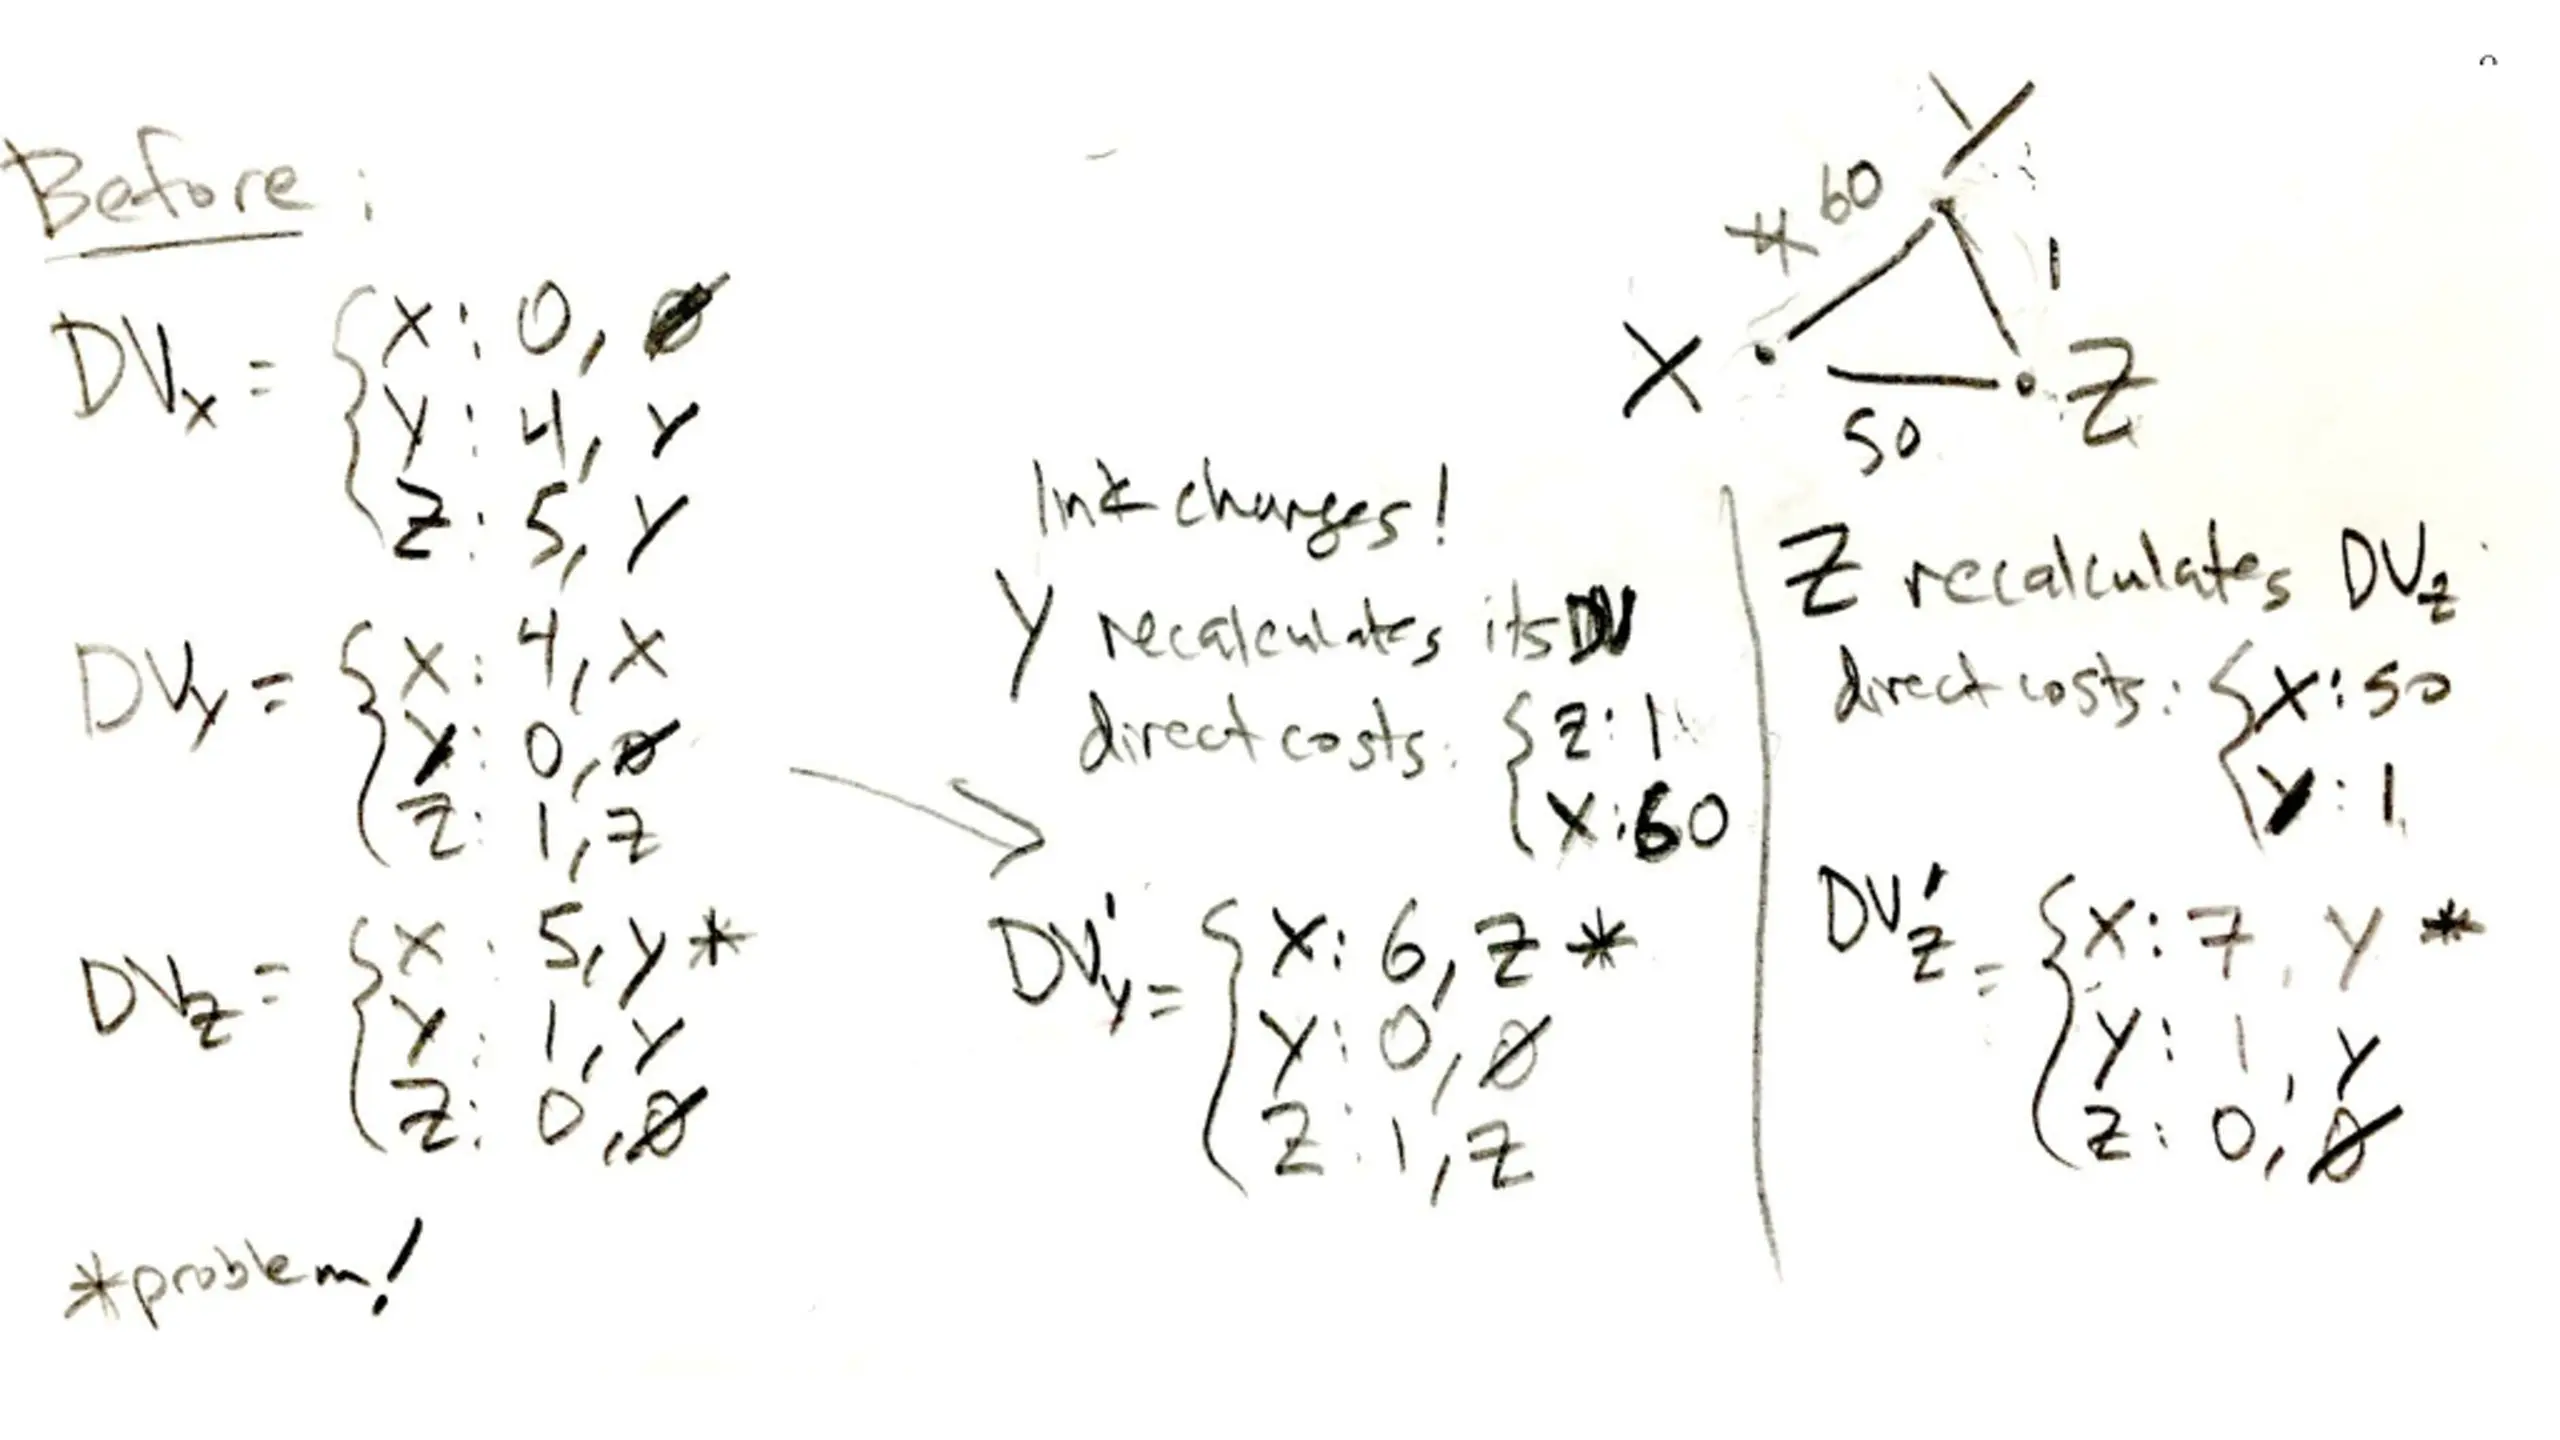 Before:
DVx = { X: 0, ∅
Y: 4, Y
Z: 5, Y
DVy = { X: 4, X
Y: 0, ∅
Z: 1, Z
DVz = { X: 5, Y *
Y: 1, Y
Z: 0, ∅
*problem!
Y
4 60
1
X
Z
50
link changes!
Y recalculates its DV
direct costs: { Z: 1
X: 60
DV'y = { X: 6, Z *
Y: 0, ∅
Z: 1, Z
Z recalculates DVz
direct costs: { X: 50
Y: 1
DV'z = { X: 7, Y *
Y: 1, Y
Z: 0, ∅